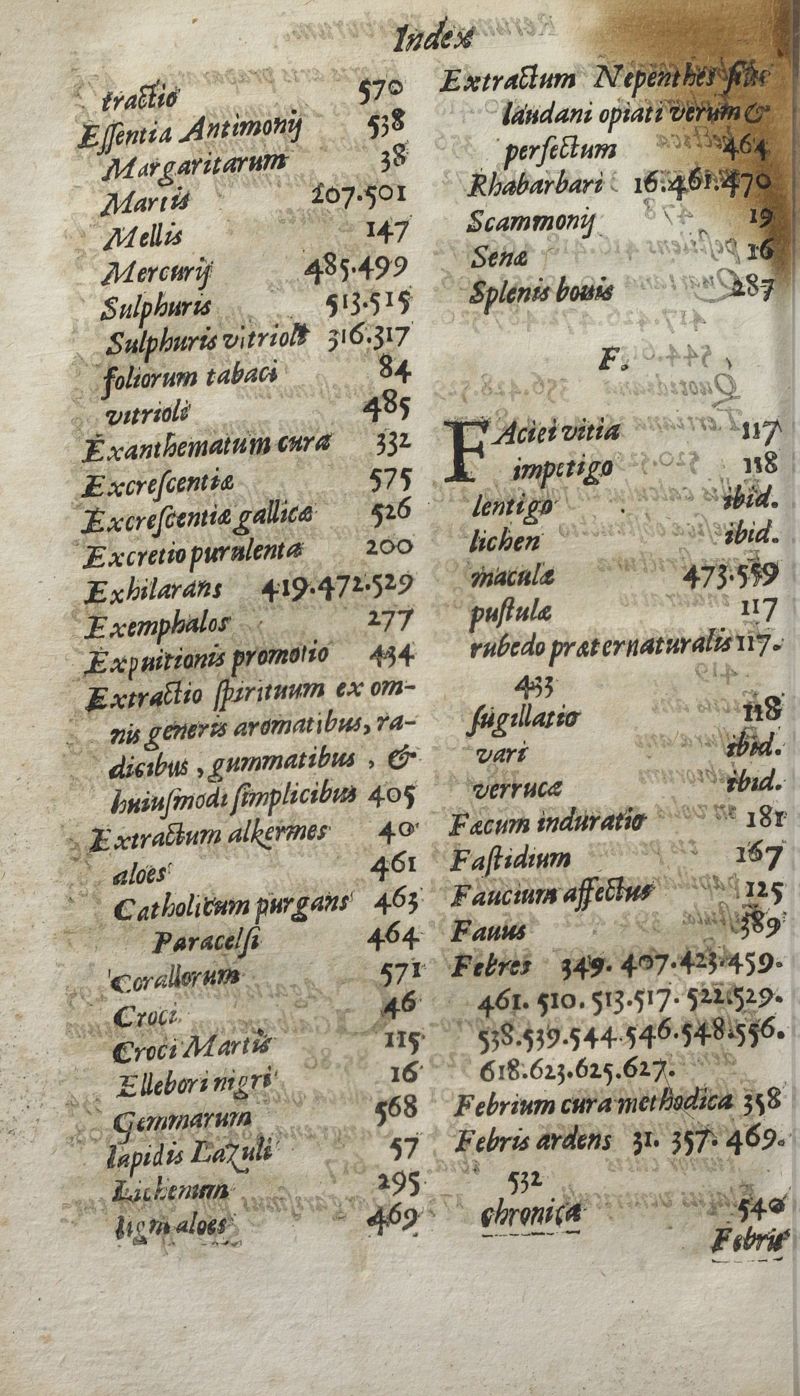 Index
tractio 570
Essentia Antimonij 538
Margaritarum 38
Martis 207.501
Mellis 147
Mercurij 485.499
Sulphuris 513.515
Sulphuris vitrioli 316.317
foliorum tabaci 84
vitrioli 485
Exanthematum cura 332
Excrescentiæ 575
Excrescentiæ gallicæ 526
Excretio purulenta 200
Exhilarans 419.472.529
Exemphalos 277
Expuitionis promotio 434
Extractio spirituum ex om-
nis generis aromatibus, ra-
dicibus, gummatibus, &
huiusmodi simplicibus 405
Extractum alkermes 40
aloes 461
Catholicum purgans 463
Paracelsi 464
Corallorum 571
Croci 46
Croci Martis 115
Ellebori nigri 16
Gemmarum 568
lapidis Lazuli 57
Lichenum 295
ligni aloes 469
Extractum Nepenthes siue
laudani opiati verum &
perfectum 464
Rhabarbari 16.461.470
Scammonij 19
Senæ 16
Splenis bouis 287
F.
FAciei vitia 117
impetigo 118
lentigo ibid.
lichen ibid.
maculæ 473.559
pustulæ 117
rubedo præternaturalis 117.
433
sugillatio 118
vari ibid.
verrucæ ibid.
Fæcum induratio 181
Fastidium 167
Faucium affectus 125
Fauus 389
Febres 349. 407.423.459.
461. 510. 513.517. 522.529.
538.539.544.546.548.556.
618.623.625.627.
Febrium cura methodica 358
Febris ardens 31. 357. 469.
532
chronica 540
Febris